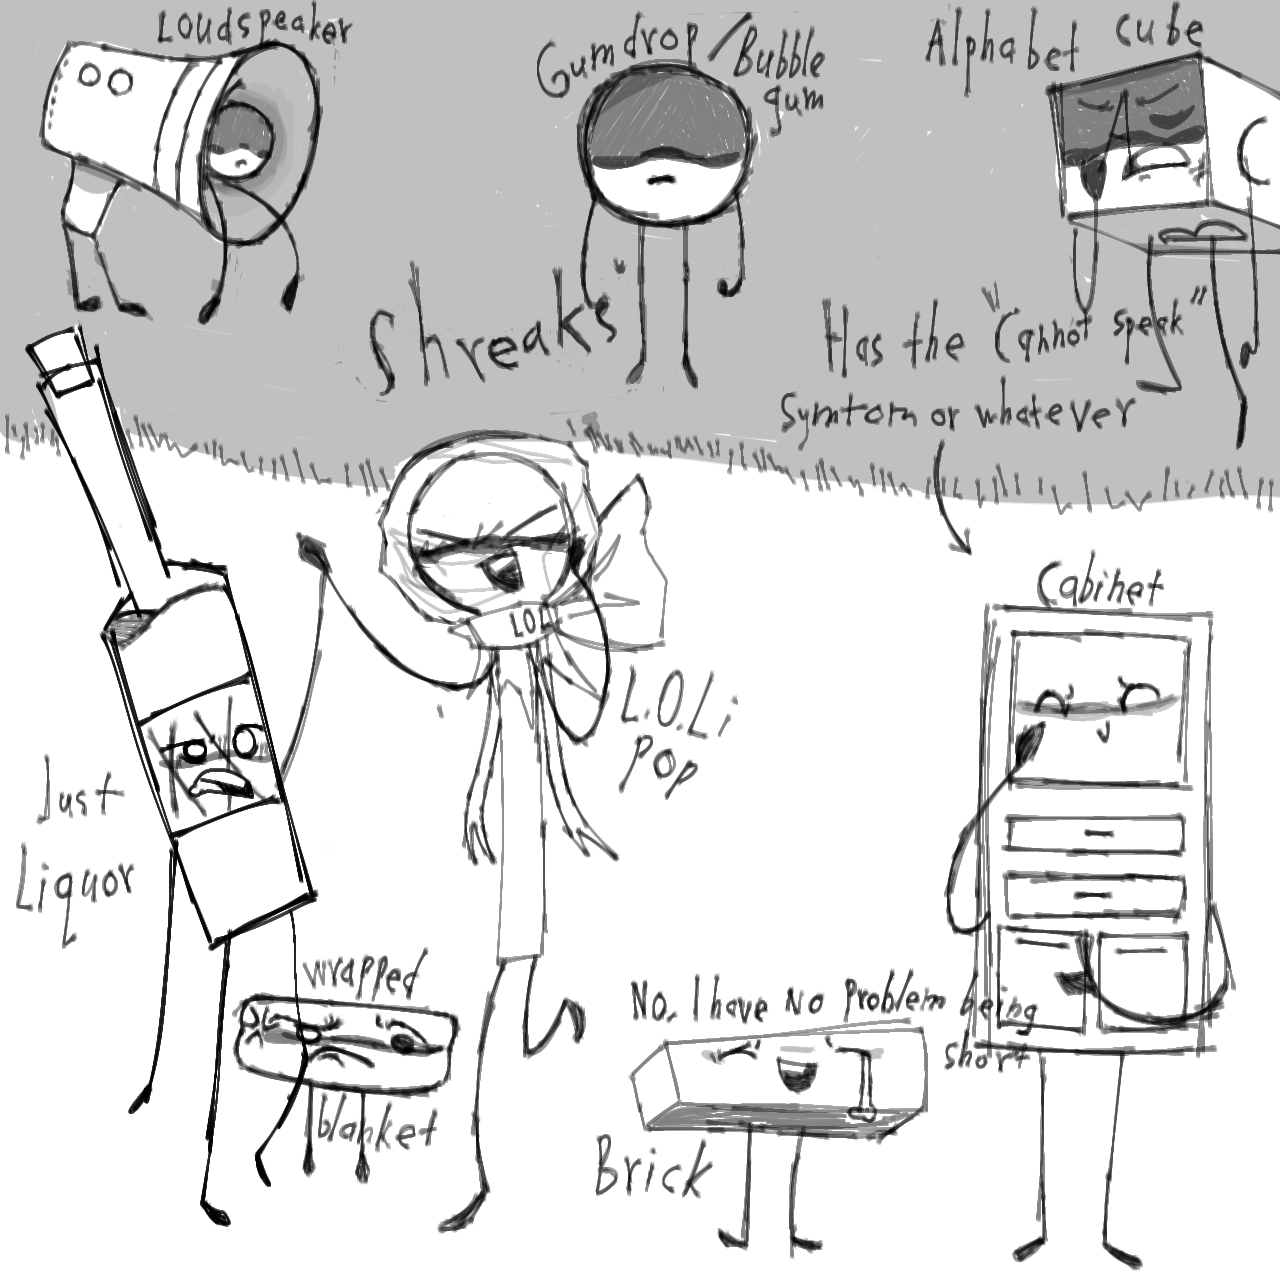 Loudspeaker
Gumdrop / Bubble
gum
Alphabet cube
A
C
Shreaks
Has the "Cannot speak"
Symtom or whatever
Cabinet
LOL
L.O.Li
Pop
Just
Liquor
wrapped
blanket
No, I have No problem being
short
Brick